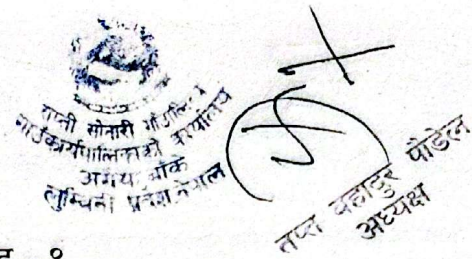 राप्ती सोनारी गाउँपालिका
गाउँकार्यपालिकाको कार्यालय
अगैया बाँके
लुम्बिनी प्रदेश नेपाल
तप्त बहादुर पौडेल
अध्यक्ष